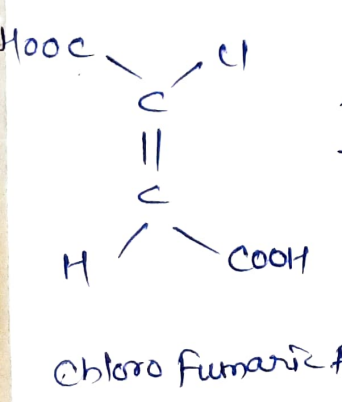 HOOC Cl
C
||
C
H COOH
Chloro Fumaric